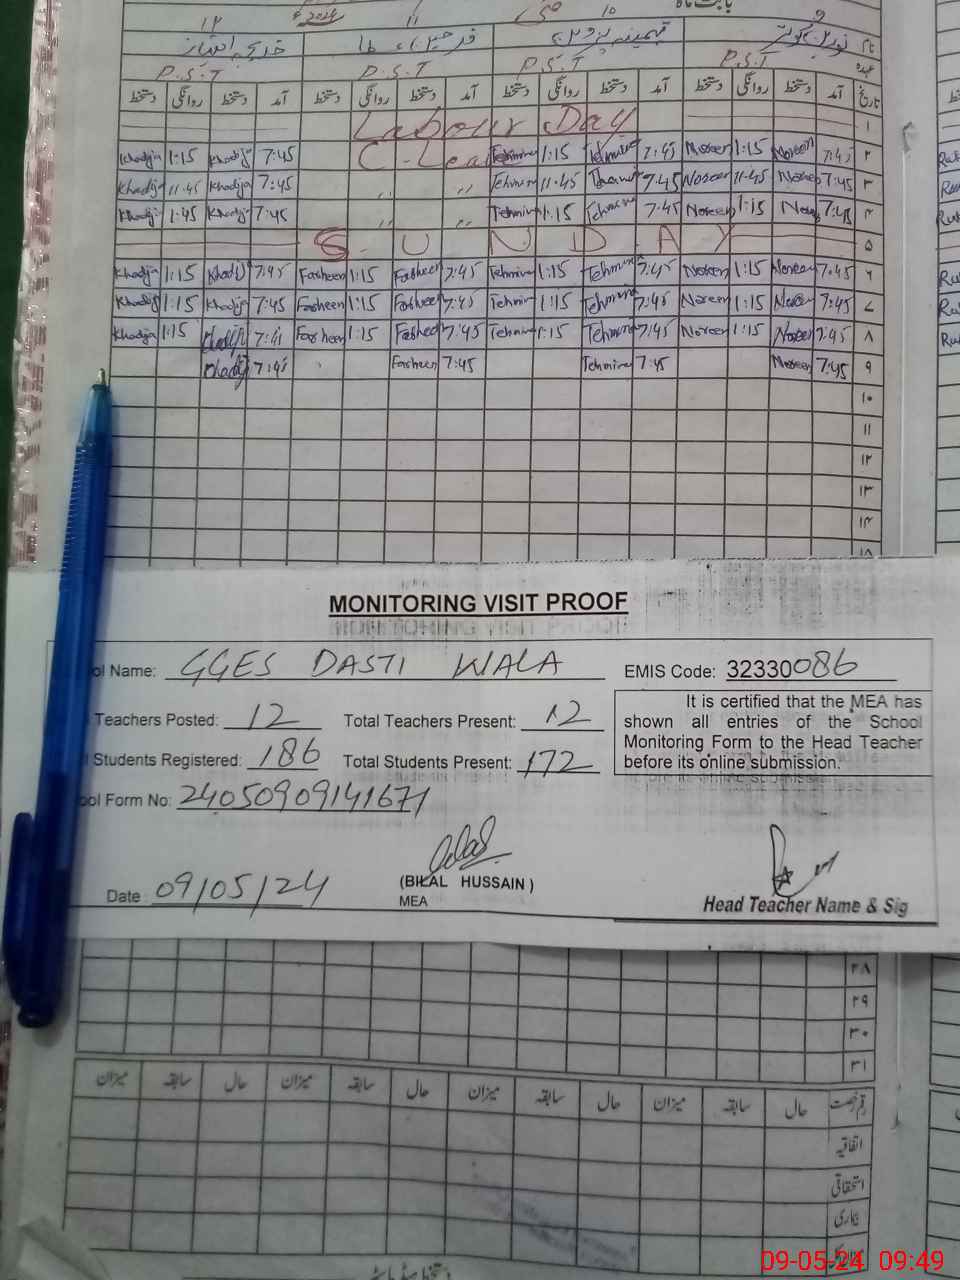 بابت ماہ
مئی 2024
١٢ ١١ ١٠ ٩
نام
عہدہ P.S.T P.S.T P.S.T P.S.T
تاریخ آمد دستخط روانگی دستخط آمد دستخط روانگی دستخط آمد دستخط روانگی دستخط آمد دستخط روانگی دستخط
Labour Day ١
Khadija 1:15 Khadija 7:45 C-Leave Tehmina 1:15 Tehmina 7:45 Noreen 1:15 Noreen 7:45 ٢
Khadija 11:45 Khadija 7:45 ,, ,, Tehmina 11:45 Tehmina 7:45 Noreen 11:45 Noreen 7:45 ٣
Khadija 1:45 Khadija 7:45 ,, ,, Tehmina 1:15 Tehmina 7:45 Noreen 1:15 Noreen 7:45 ٤
SUNDAY ٥
Khadija 1:15 Khadija 7:45 Farheen 1:15 Farheen 7:45 Tehmina 1:15 Tehmina 7:45 Noreen 1:15 Noreen 7:45 ٦
Khadija 1:15 Khadija 7:45 Farheen 1:15 Farheen 7:45 Tehmina 1:15 Tehmina 7:45 Noreen 1:15 Noreen 7:45 ٧
Khadija 1:15 Khadija 7:41 Farheen 1:15 Farheen 7:45 Tehmina 1:15 Tehmina 7:45 Noreen 1:15 Noreen 7:45 ٨
Khadija 7:45 Farheen 7:45 Tehmina 7:45 Noreen 7:45 ٩
١٠
١١
١٢
١٣
١٤
١٥
MONITORING VISIT PROOF
Name: GGES DASTI WALA EMIS Code: 32330086
Teachers Posted: 12 Total Teachers Present: 12
Students Registered: 186 Total Students Present: 172
Form No: 24050909141671
It is certified that the MEA has
shown all entries of the School
Monitoring Form to the Head Teacher
before its online submission.
Date: 09/05/24 (BILAL HUSSAIN)
MEA
Head Teacher Name & Sig
٢٨
٢٩
٣٠
٣١
رقم رخصت حال سابقہ میزان حال سابقہ میزان حال سابقہ میزان حال سابقہ میزان
اتفاقیہ
استحقاقی
بیماری
09-05-24 09:49